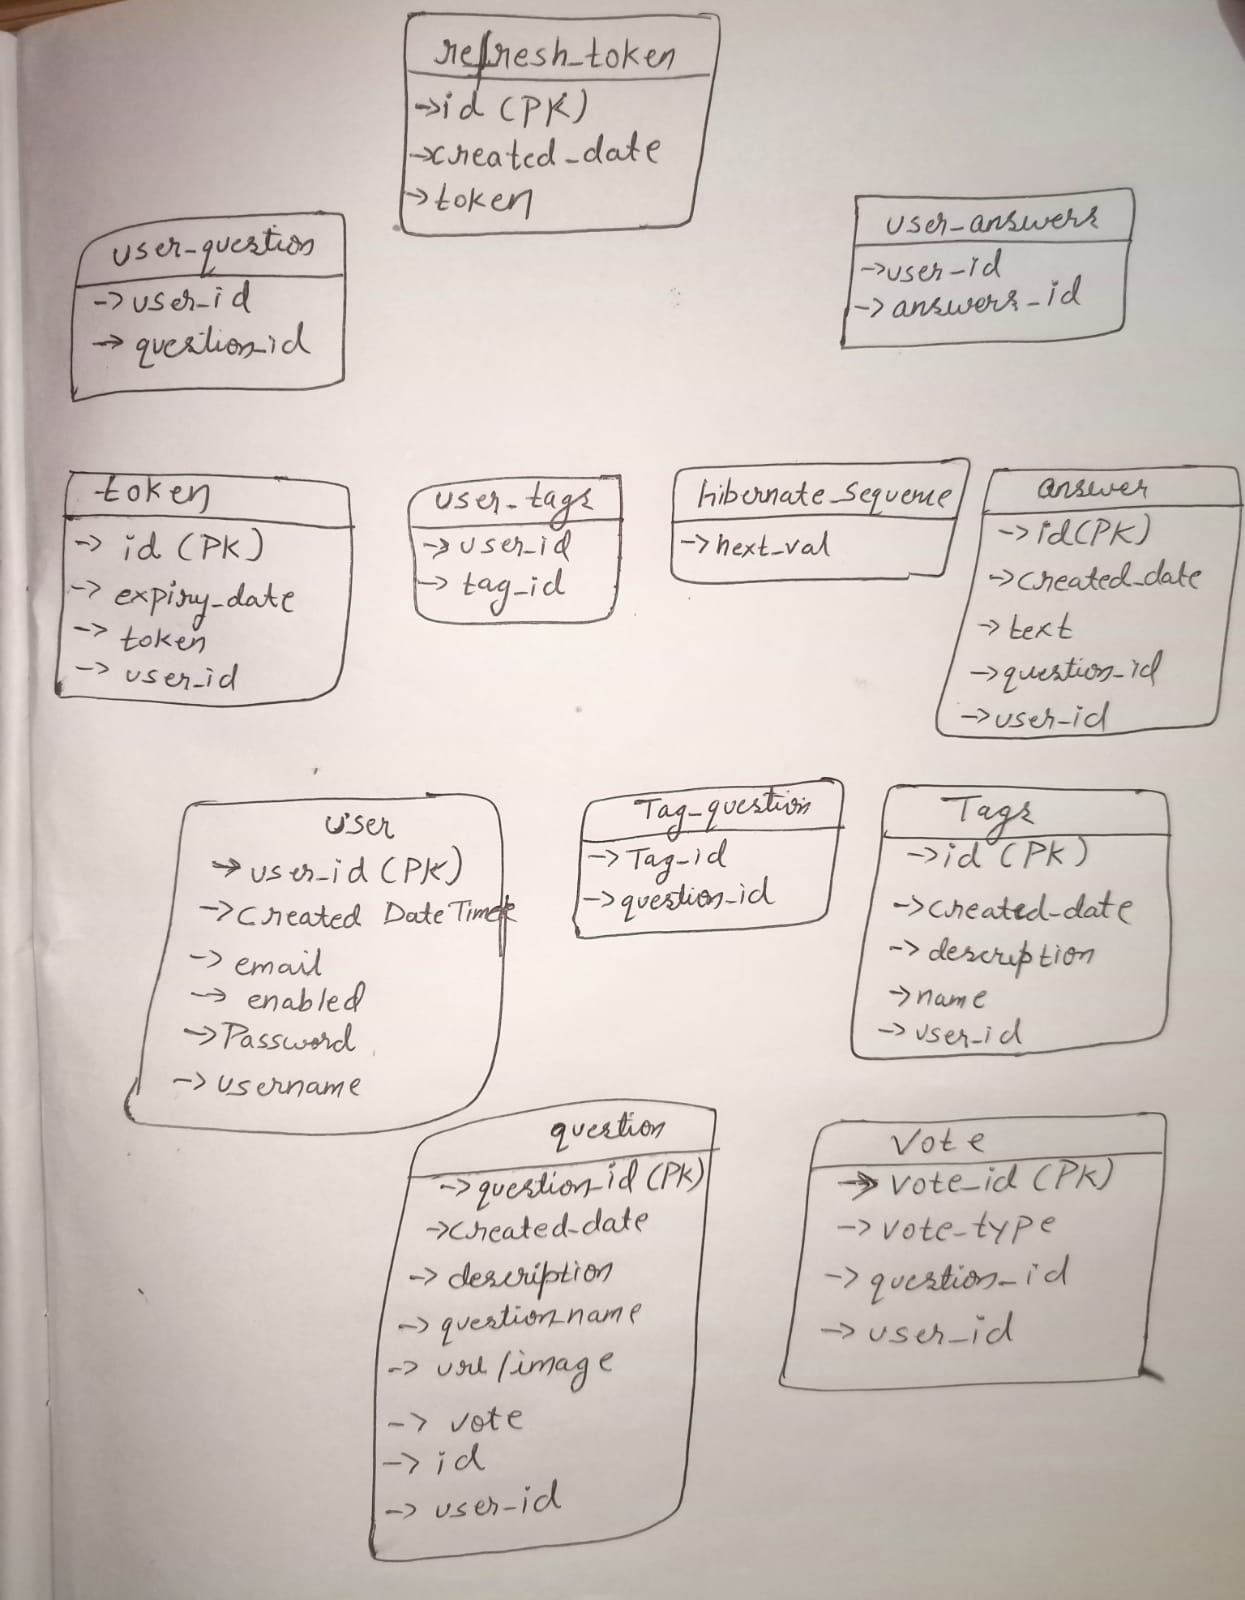 refresh_token
->id (PK)
->created_date
->token
user_question
->user_id
->question_id
user_answers
->user_id
->answers_id
token
->id (PK)
->expiry_date
->token
->user_id
user_tags
->user_id
->tag_id
hibernate_sequence
->next_val
answer
->id(PK)
->created_date
->text
->question_id
->user_id
user
->user_id (PK)
->Created DateTime
->email
->enabled
->Password
->username
Tag_question
->Tag_id
->question_id
Tags
->id (PK)
->created_date
->description
->name
->user_id
question
->question_id (PK)
->created_date
->description
->question_name
->url/image
->vote
->id
->user_id
Vote
->vote_id (PK)
->vote_type
->question_id
->user_id